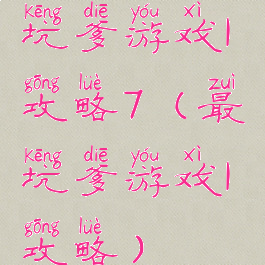 kēng diē yóu xì
坑爹游戏|
gōng lüè zuì
攻略7（最
kēng diē yóu xì
坑爹游戏|
gōng lüè
攻略）